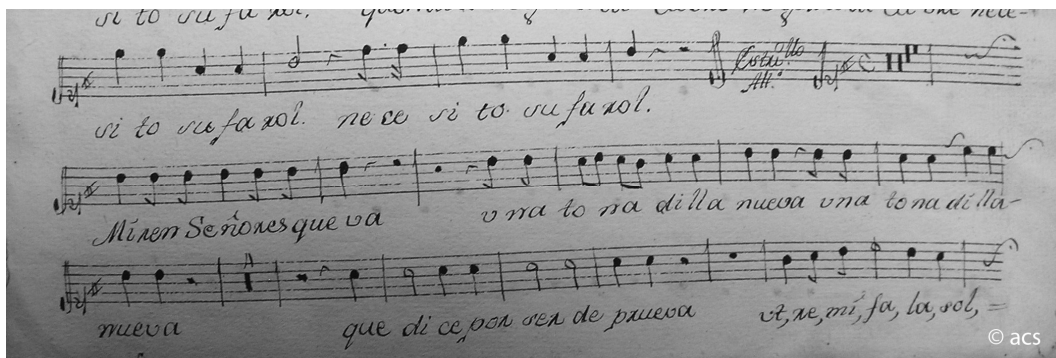 si to su fa rol.
Estri.llo
All.º
si to su fa rol. ne ce si to su fa rol.
Miren Señores que va una to na dilla nueva una tonadilla-
nueva que di ce por ser de prueva ut, re, mí, fa, la, sol, =
© acs